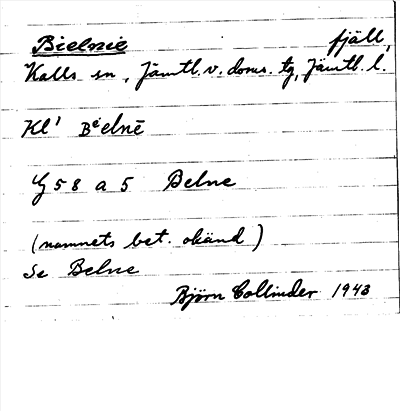 Bielnie fjäll,
Kalls sn, Jämtl. v. doms. tg, Jämtl. l.
Kl' Bᵉelnē
G 58 a 5 Belne
(namnets bet. okänd)
Se Belne
Björn Collinder 1943